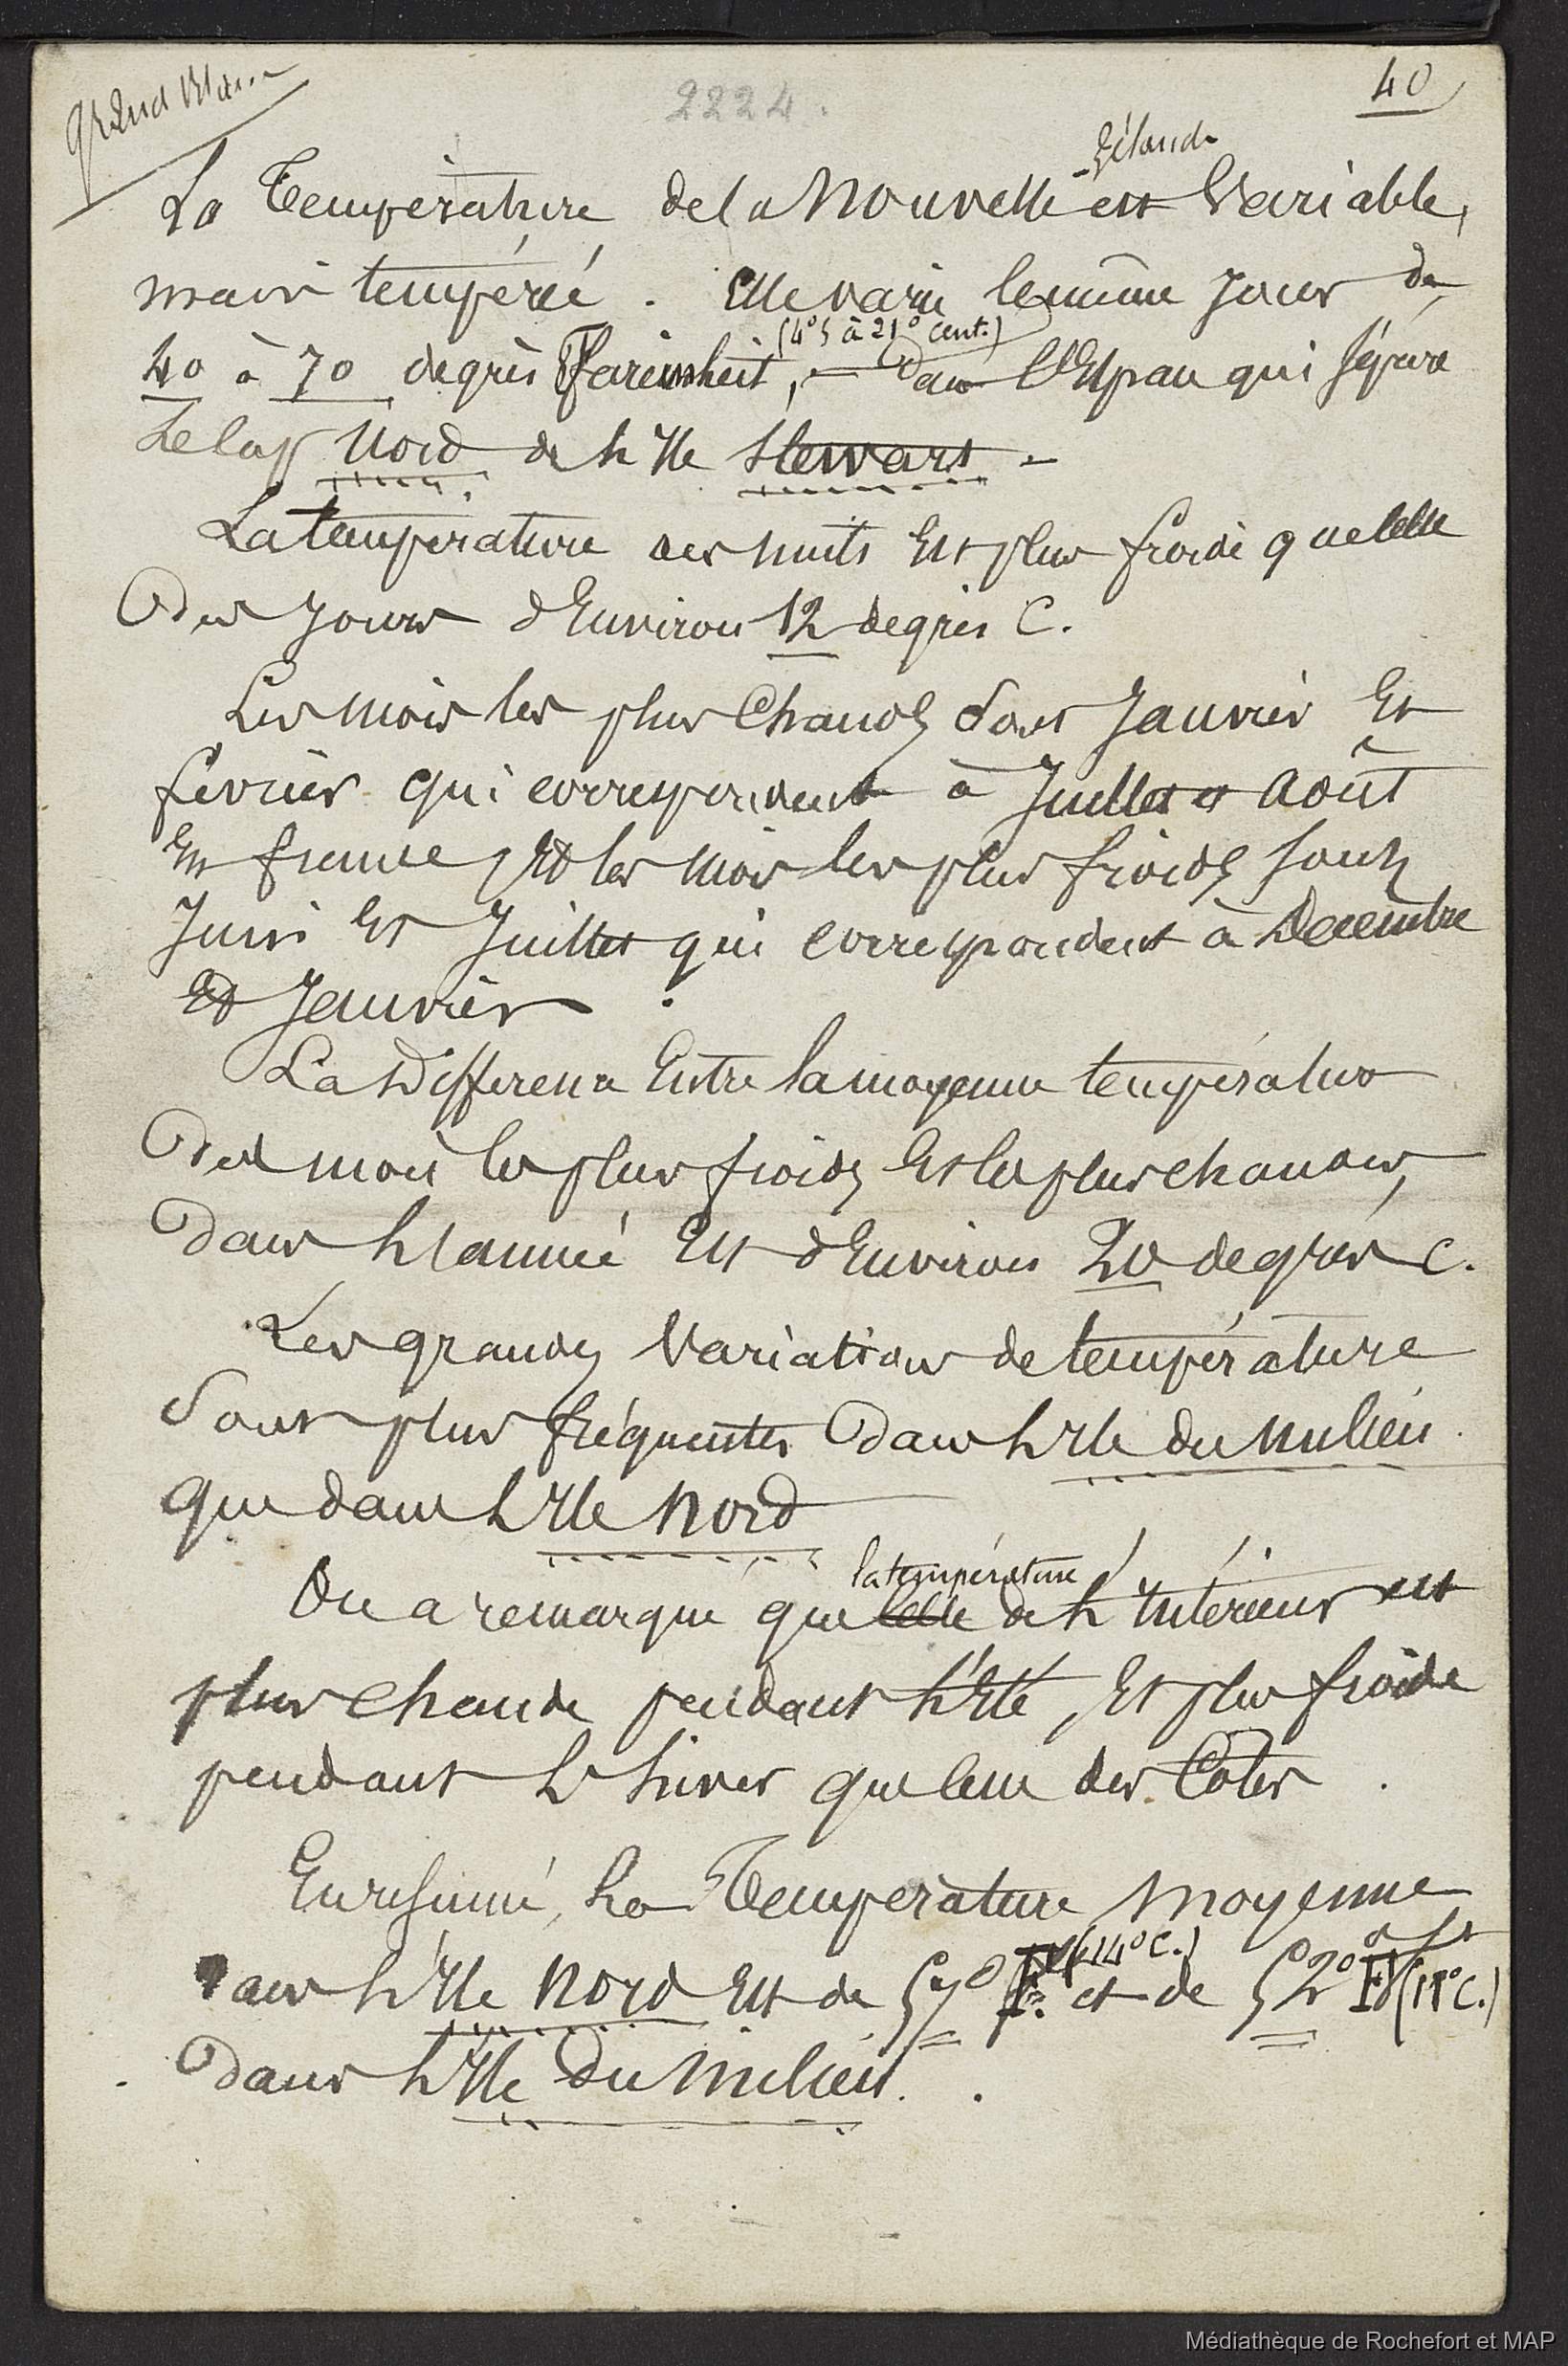 40
2224.
Zélande
La Température de la Nouvelle est Variable,
mais tempérée. Elle varie le même Jour de
(4°5 à 21° cent.)
40 à 70 degrès Farenheit, dans l'Espace qui sépare
Le Cap Nord de l'Ile Stewart
La température des nuits Est plus froide que celle
Des Jours d'Environ 12 degrès C.
Les mois les plus Chauds Sont Janvier Et
février qui correspondent à Juillet et Août
En france, Et les mois les plus froids sont
Juin Et Juillet qui correspondent à Décembre
Et Janvier.
La Différence Entre la moyenne température
Des mois les plus froids Et les plus chauds,
Dans l'année Est d'Environ 20 degrès C.
Les grandes Variations de température
Sont plus fréquentes Dans l'Ile du Milieu
que dans l'Ile Nord
la température
On a remarqué que celle de l'Intérieur est
plus chaude pendant l'Eté, Et plus froide
pendant l'hiver que celle des Côtes.
En résumé, La Température moyenne
(14° C.)
dans l'Ile Nord Est de 57° F. et de 52° F (11° C.)
Dans l'Ile Du Milieu.
Médiathèque de Rochefort et MAP